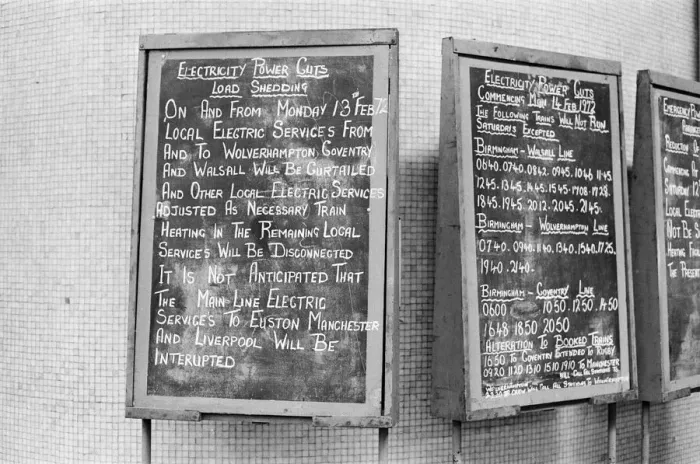 ELECTRICITY POWER CUTS
LOAD SHEDDING
ON AND FROM MONDAY 13TH FEB 72
LOCAL ELECTRIC SERVICES FROM
AND TO WOLVERHAMPTON, COVENTRY
AND WALSALL WILL BE CURTAILED
AND OTHER LOCAL ELECTRIC SERVICES
ADJUSTED AS NECESSARY TRAIN
HEATING IN THE REMAINING LOCAL
SERVICE'S WILL BE DISCONNECTED
IT IS NOT ANTICIPATED THAT
THE MAIN-LINE ELECTRIC
SERVICE'S TO EUSTON MANCHESTER
AND LIVERPOOL WILL BE
INTERUPTED
ELECTRICITY POWER CUTS
COMMENCING MON 14 FEB 1972
THE FOLLOWING TRAINS WILL NOT RUN
SATURDAYS EXCEPTED
BIRMINGHAM - WALSALL LINE
0640. 0740. 0842. 0945. 1046 1145.
1245. 1345. 1445. 1545. 1708. 1728.
1845. 1945. 2012. 2045. 2145.
BIRMINGHAM - WOLVERHAMPTON LINE
0740. 0940. 1140. 1340. 1540. 1725.
1940. 2140.
BIRMINGHAM - COVENTRY LINE
0600 1050. 1250. 1450
1648 1850 2050
ALTERATION TO BOOKED TRAINS
1650 TO COVENTRY EXTENDED TO RUGBY
0920 1120 1310 1510 1910 TO MANCHESTER
WILL CALL ALL STATIONS
WILL CALL ALL STATIONS TO WOLVERHAMPTON
EMERGENCY
REDUCTION
COMMENCING
SATURDAY
LOCAL
NOT BE
HEATING
THE PRESENT